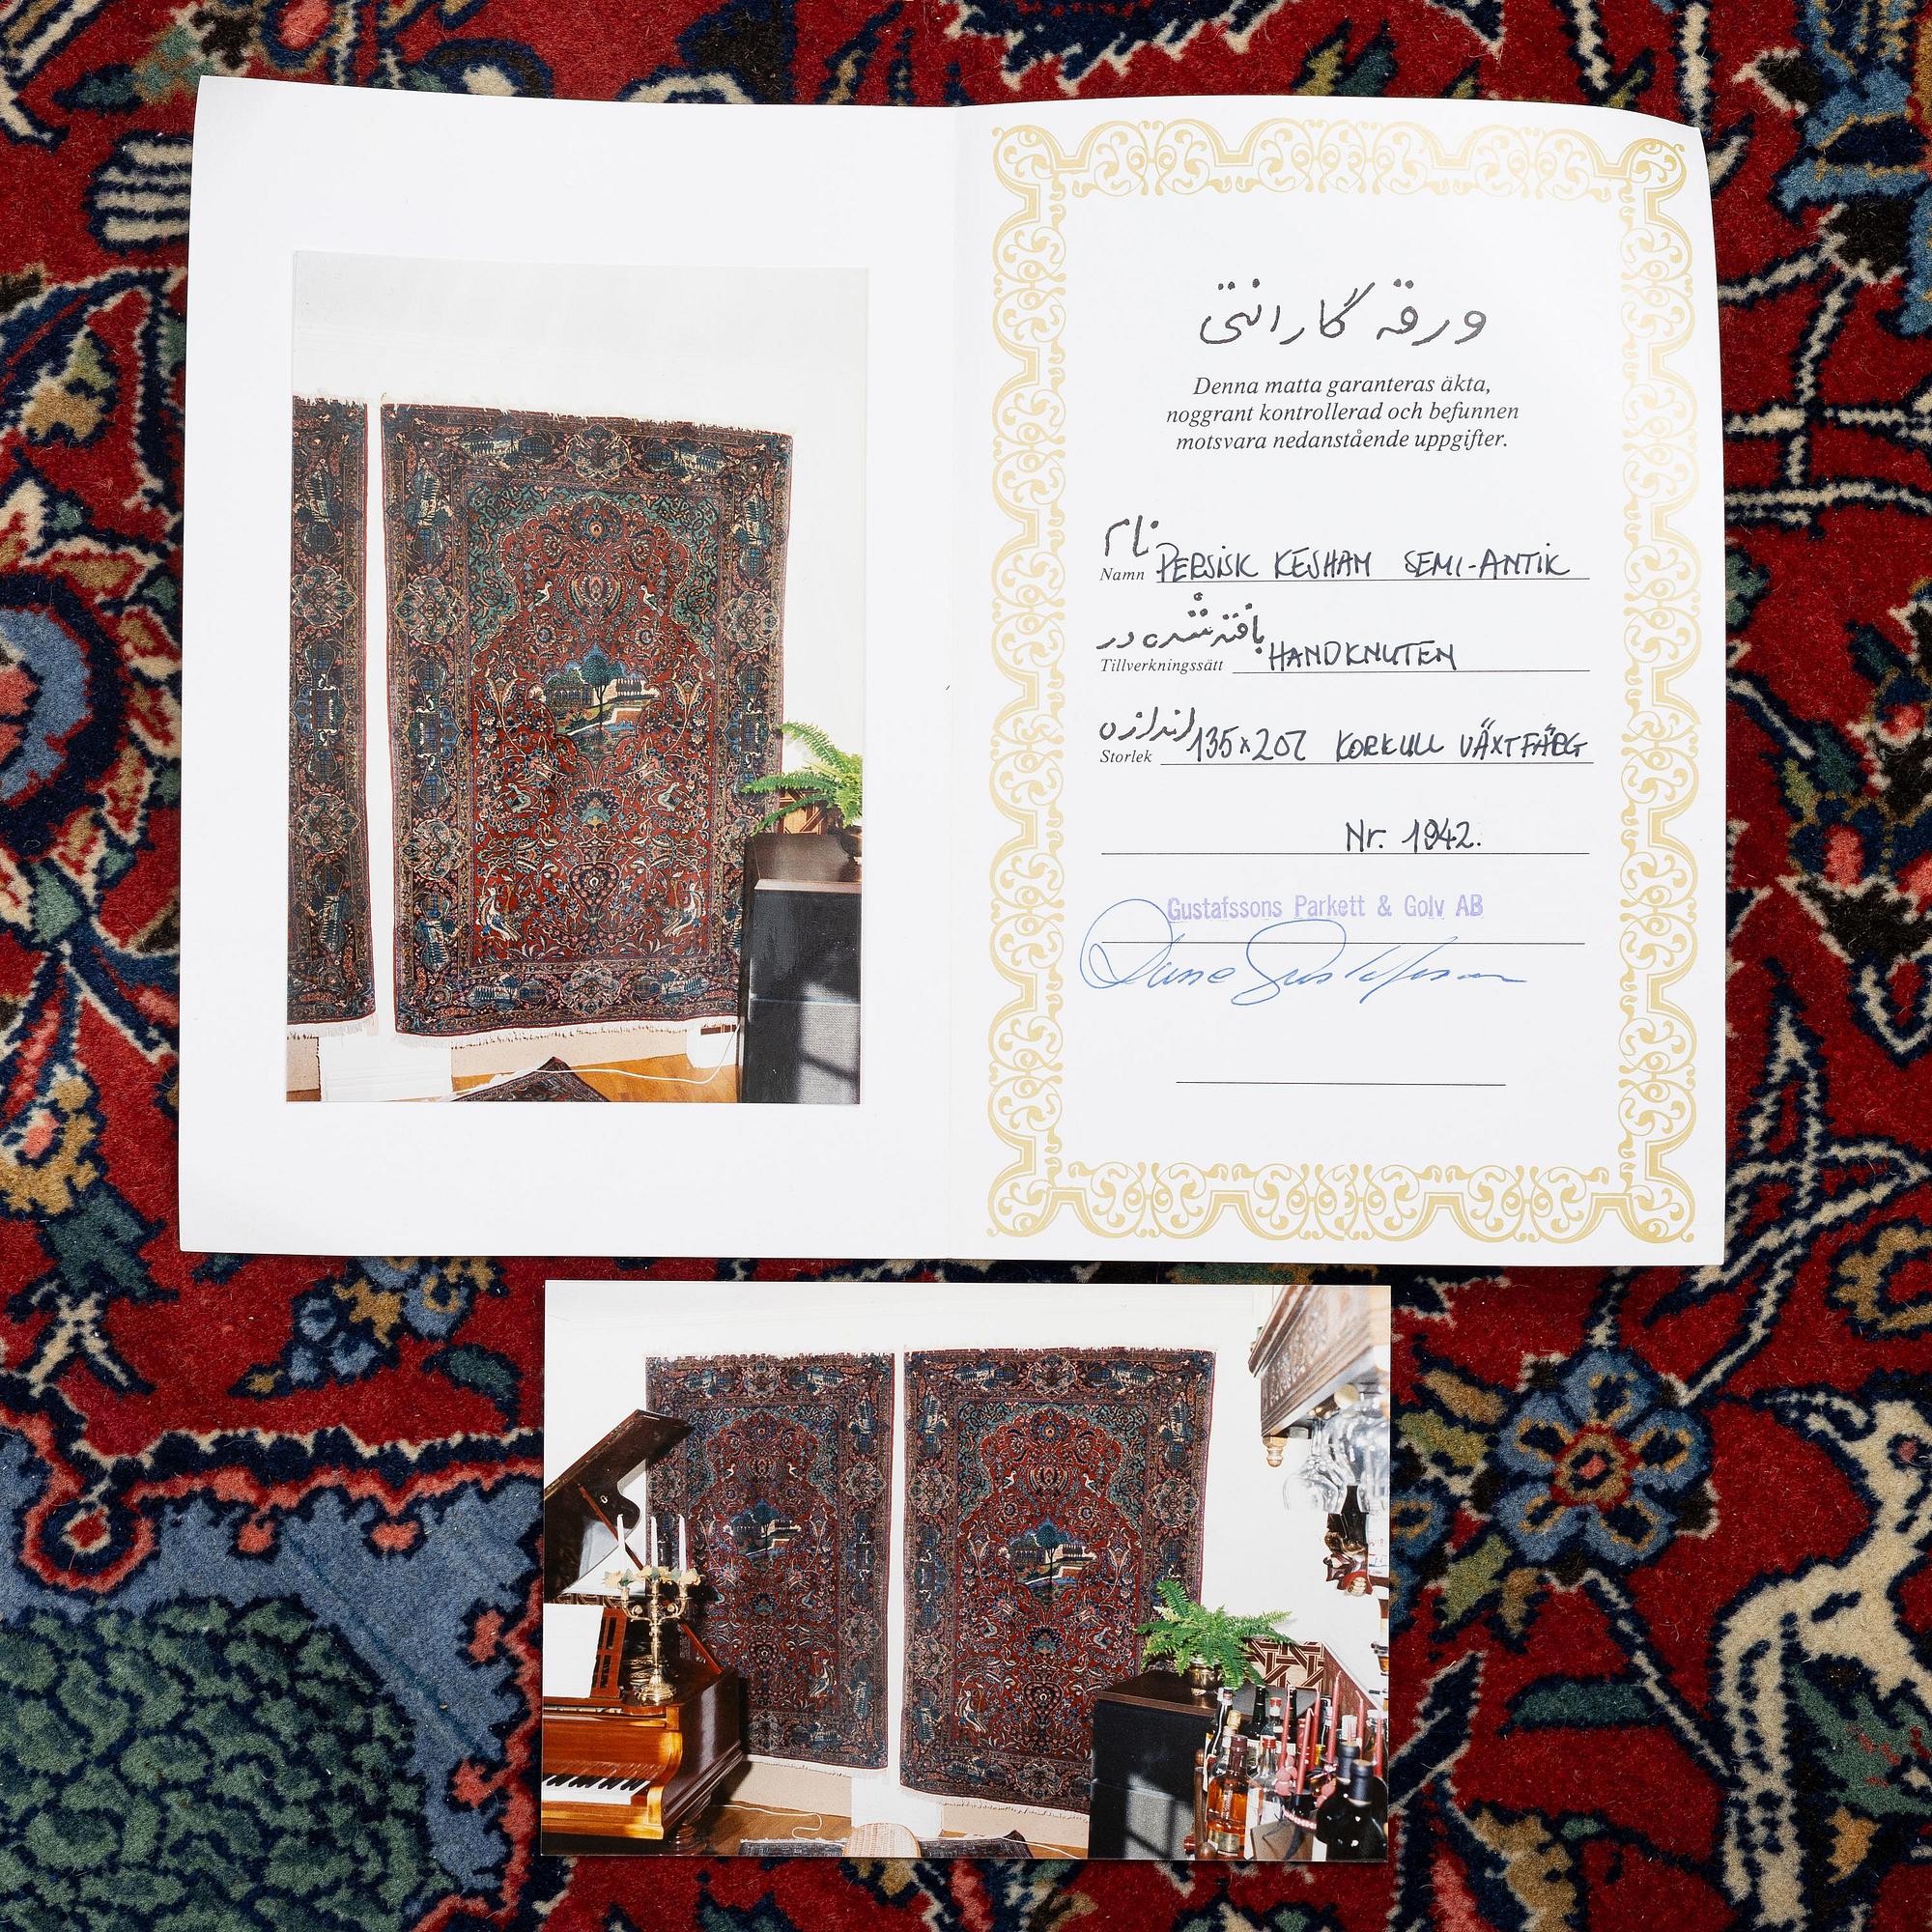 ورقه گارانتی
Denna matta garanteras äkta,
noggrant kontrollerad och befunnen
motsvara nedanstående uppgifter.
نام
Namn PERSISK KESHAN SEMI-ANTIK
بافته شده در
Tillverkningssätt HANDKNUTEN
اندازه
Storlek 135x207 KORKULL VÄXTFÄRG
Nr. 1942.
Gustafssons Parkett & Golv AB
Rune Gustafsson